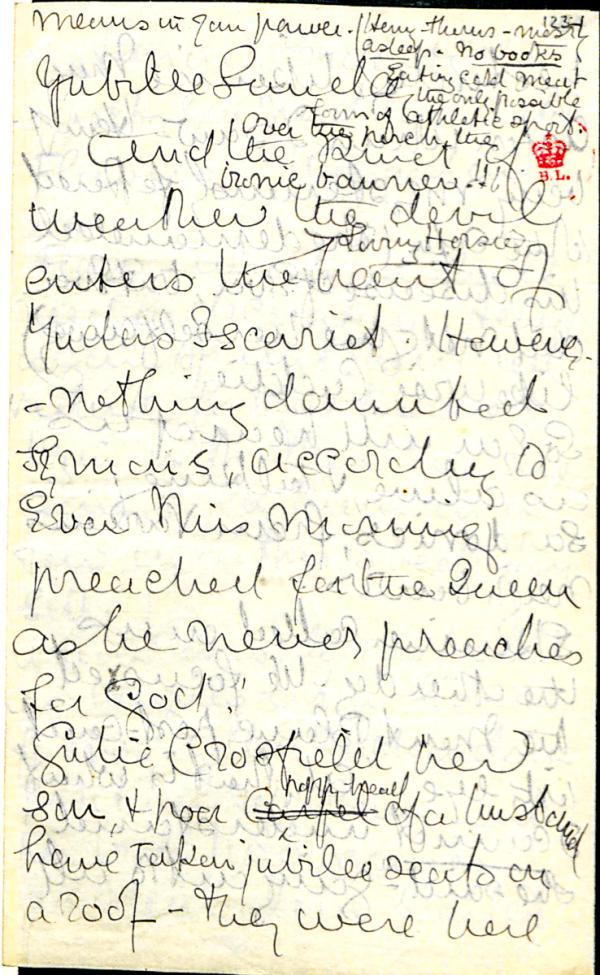 means in your power. // Henry - thermos - mostly
1234
asleep. No books
Jubilee Sunda
Eating cold meat
the only possible
form of athletic sport.
over the porch the
And the
ironic banner!!!
B.L.
weather the devil
enters the heart of
Judas Iscariot. However,
- nothing daunted
Symons, according to
Eva this morning
preached for the Queen
as he never preaches
for God!
Julie Crosfield her
son, & poor of a husband
happy-meall
have taken jubilee seats on
a roof - they were here